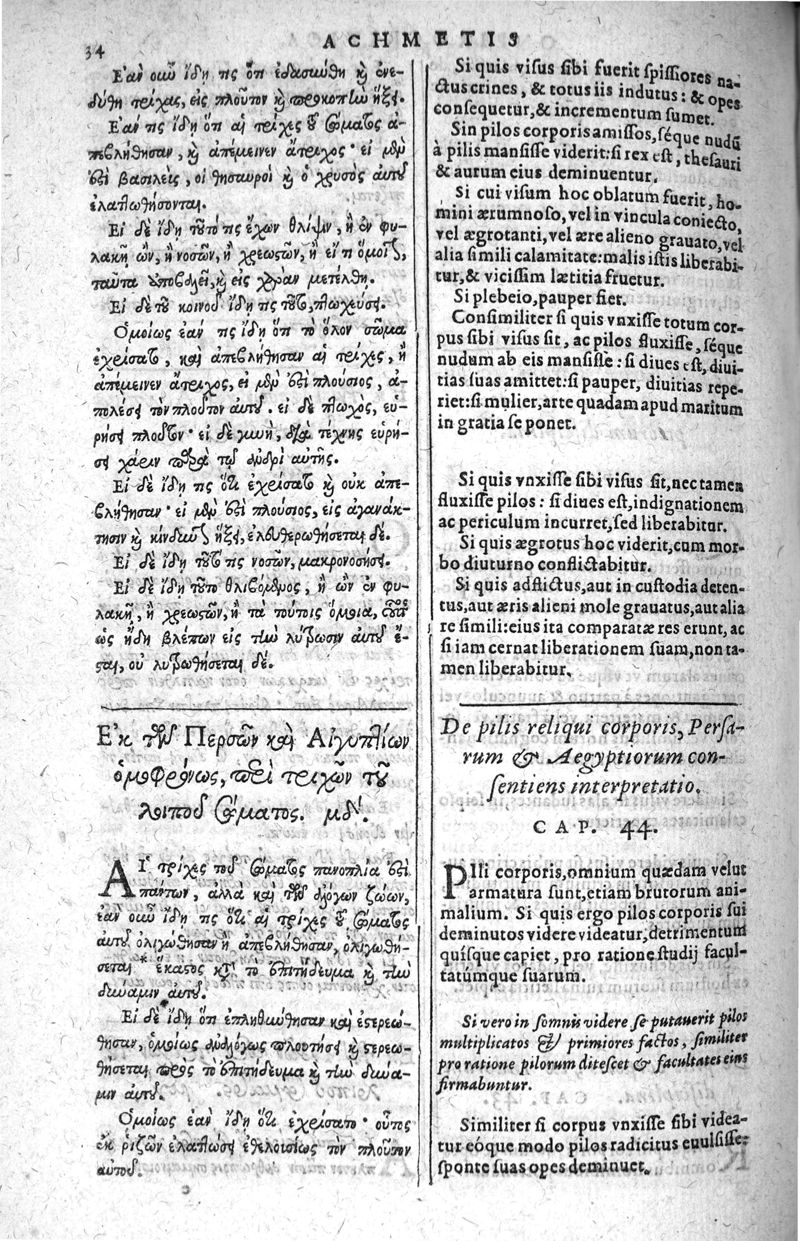 34
ACHMETIS
Ἐὰν οὖν ἴδῃ τις ὅτι ἐδασύνθη καὶ ἐνε-
δύθη τρίχας, εἰς πλοῦτον καὶ προκοπὴν ἥξει.
Ἐάν τις ἴδῃ ὅτι αἱ τρίχες τοῦ σώματος ἀ-
πεβλήθησαν, καὶ ἀπέμεινεν ἄτριχος· εἰ μὲν
ἐστὶ βασιλεὺς, οἱ θησαυροὶ καὶ ὁ χρυσὸς αὐτοῦ
ἐλαττωθήσονται.
Εἰ δὲ ἴδῃ τοῦτό τις ἔχων θλίψιν, ἢ ἐν φυ-
λακῇ ὢν, ἢ νοσῶν, ἢ χρεωστῶν, ἢ εἴ τι ὅμοιον,
ταῦτα ἀποβαλεῖ, καὶ εἰς χαρὰν μετέλθῃ.
Εἰ δὲ τοῦ κοινοῦ ἴδῃ τις τοῦτο, πτωχεύσει.
Ὁμοίως ἐάν τις ἴδῃ ὅτι τὸ ὅλον σῶμα
ἐχρίσατο, καὶ ἀπεβλήθησαν αἱ τρίχες, ἢ
ἀπέμεινεν ἄτριχος, εἰ μὲν ἐστὶ πλούσιος, ἀ-
πολέσει τὸν πλοῦτον αὐτοῦ. εἰ δὲ πτωχὸς, εὑ-
ρήσει πλοῦτον· εἰ δὲ γυνὴ, διὰ τέχνης εὑρή-
σει χάριν παρὰ τῷ ἀνδρὶ αὐτῆς.
Εἰ δὲ ἴδῃ τις ὅτι ἐχρίσατο καὶ οὐκ ἀπε-
βλήθησαν· εἰ μὲν ἐστὶ πλούσιος, εἰς ἀγανάκ-
τησιν καὶ κίνδυνον ἥξει, ἐλευθερωθήσεται δέ.
Εἰ δὲ ἴδῃ τοῦτο τις νοσῶν, μακρονοσήσει.
Εἰ δὲ ἴδῃ τοῦτο θλιβόμενος, ἢ ὢν ἐν φυ-
λακῇ, ἢ χρεωστῶν, ἢ τὰ τούτοις ὅμοια,
ὡς ἤδη βλέπων εἰς τὴν λύτρωσιν αὐτοῦ ἔ-
σται, οὐ λυτρωθήσεται δέ.
Ἐκ τῶν Περσῶν καὶ Αἰγυπτίων
ὁμοφρόνως, περὶ τριχῶν τοῦ
λοιποῦ σώματος. μδʹ.
ΑἹ τρίχες τοῦ σώματος πανοπλία ἐστὶ
πάντων, ἀλλὰ καὶ τῶν ἀλόγων ζώων,
ἐὰν οὖν ἴδῃ τις ὅτι αἱ τρίχες τοῦ σώματος
αὐτοῦ ὀλιγώθησαν ἢ ἀπεβλήθησαν, ὀλιγωθή-
σεται * ἕκαστος κατὰ τὸ ἐπιτήδευμα καὶ τὴν
δύναμιν αὐτοῦ.
Εἰ δὲ ἴδῃ ὅτι ἐπληθύνθησαν καὶ ἐστερεώ-
θησαν, ὁμοίως ἀναλόγως πλουτήσει καὶ στερεω-
θήσεται πρὸς τὸ ἐπιτήδευμα καὶ τὴν δύνα-
μιν αὐτοῦ.
Ὁμοίως ἐὰν ἴδῃ ὅτι ἐχρίσατο· οὗτος
ἐκ ῥιζῶν ἐλαττώσει ἐθελουσίως τὸν πλοῦτον
αὐτοῦ.
c
Si quis visus sibi fuerit spissiores na-
ctus crines, & totus iis indutus: & opes
consequetur, & incrementum sumet.
Sin pilos corporis amissos, séque nudū
à pilis mansisse viderit: si rex est, thesauri
& aurum eius deminuentur.
Si cui visum hoc oblatum fuerit, ho-
mini ærumnoso, vel in vincula coniecto,
vel ægrotanti, vel ære alieno grauato, vel
alia simili calamitate: malis istis liberabi-
tur, & vicissim lætitia fruetur.
Si plebeio, pauper fiet.
Consimiliter si quis vnxisse totum cor-
pus sibi visus sit, ac pilos fluxisse, séque
nudum ab eis mansisse: si diues est, diui-
tias suas amittet: si pauper, diuitias repe-
riet: si mulier, arte quadam apud maritum
in gratia se ponet.
Si quis vnxisse sibi visus sit, nec tamen
fluxisse pilos: si diues est, indignationem
ac periculum incurret, sed liberabitur.
Si quis ægrotus hoc viderit, cum mor-
bo diuturno conflictabitur.
Si quis adflictus, aut in custodia deten-
tus, aut æris alieni mole grauatus, aut alia
re simili: eius ita comparatæ res erunt, ac
si iam cernat liberationem suam, non ta-
men liberabitur.
De pilis reliqui corporis, Persa-
rum & Aegyptiorum con-
sentiens interpretatio.
CAP. 44.
PIli corporis, omnium quædam velut
armatura sunt, etiam brutorum ani-
malium. Si quis ergo pilos corporis sui
deminutos videre videatur, detrimentum
quisque capiet, pro ratione studij facul-
tatúmque suarum.
Si vero in somnis videre se putauerit pilos
multiplicatos & firmiores factos, similiter
pro ratione pilorum ditescet & facultates eius
firmabuntur.
Similiter si corpus vnxisse sibi videa-
tur eóque modo pilos radicitus euulsisse:
sponte suas opes deminuet.